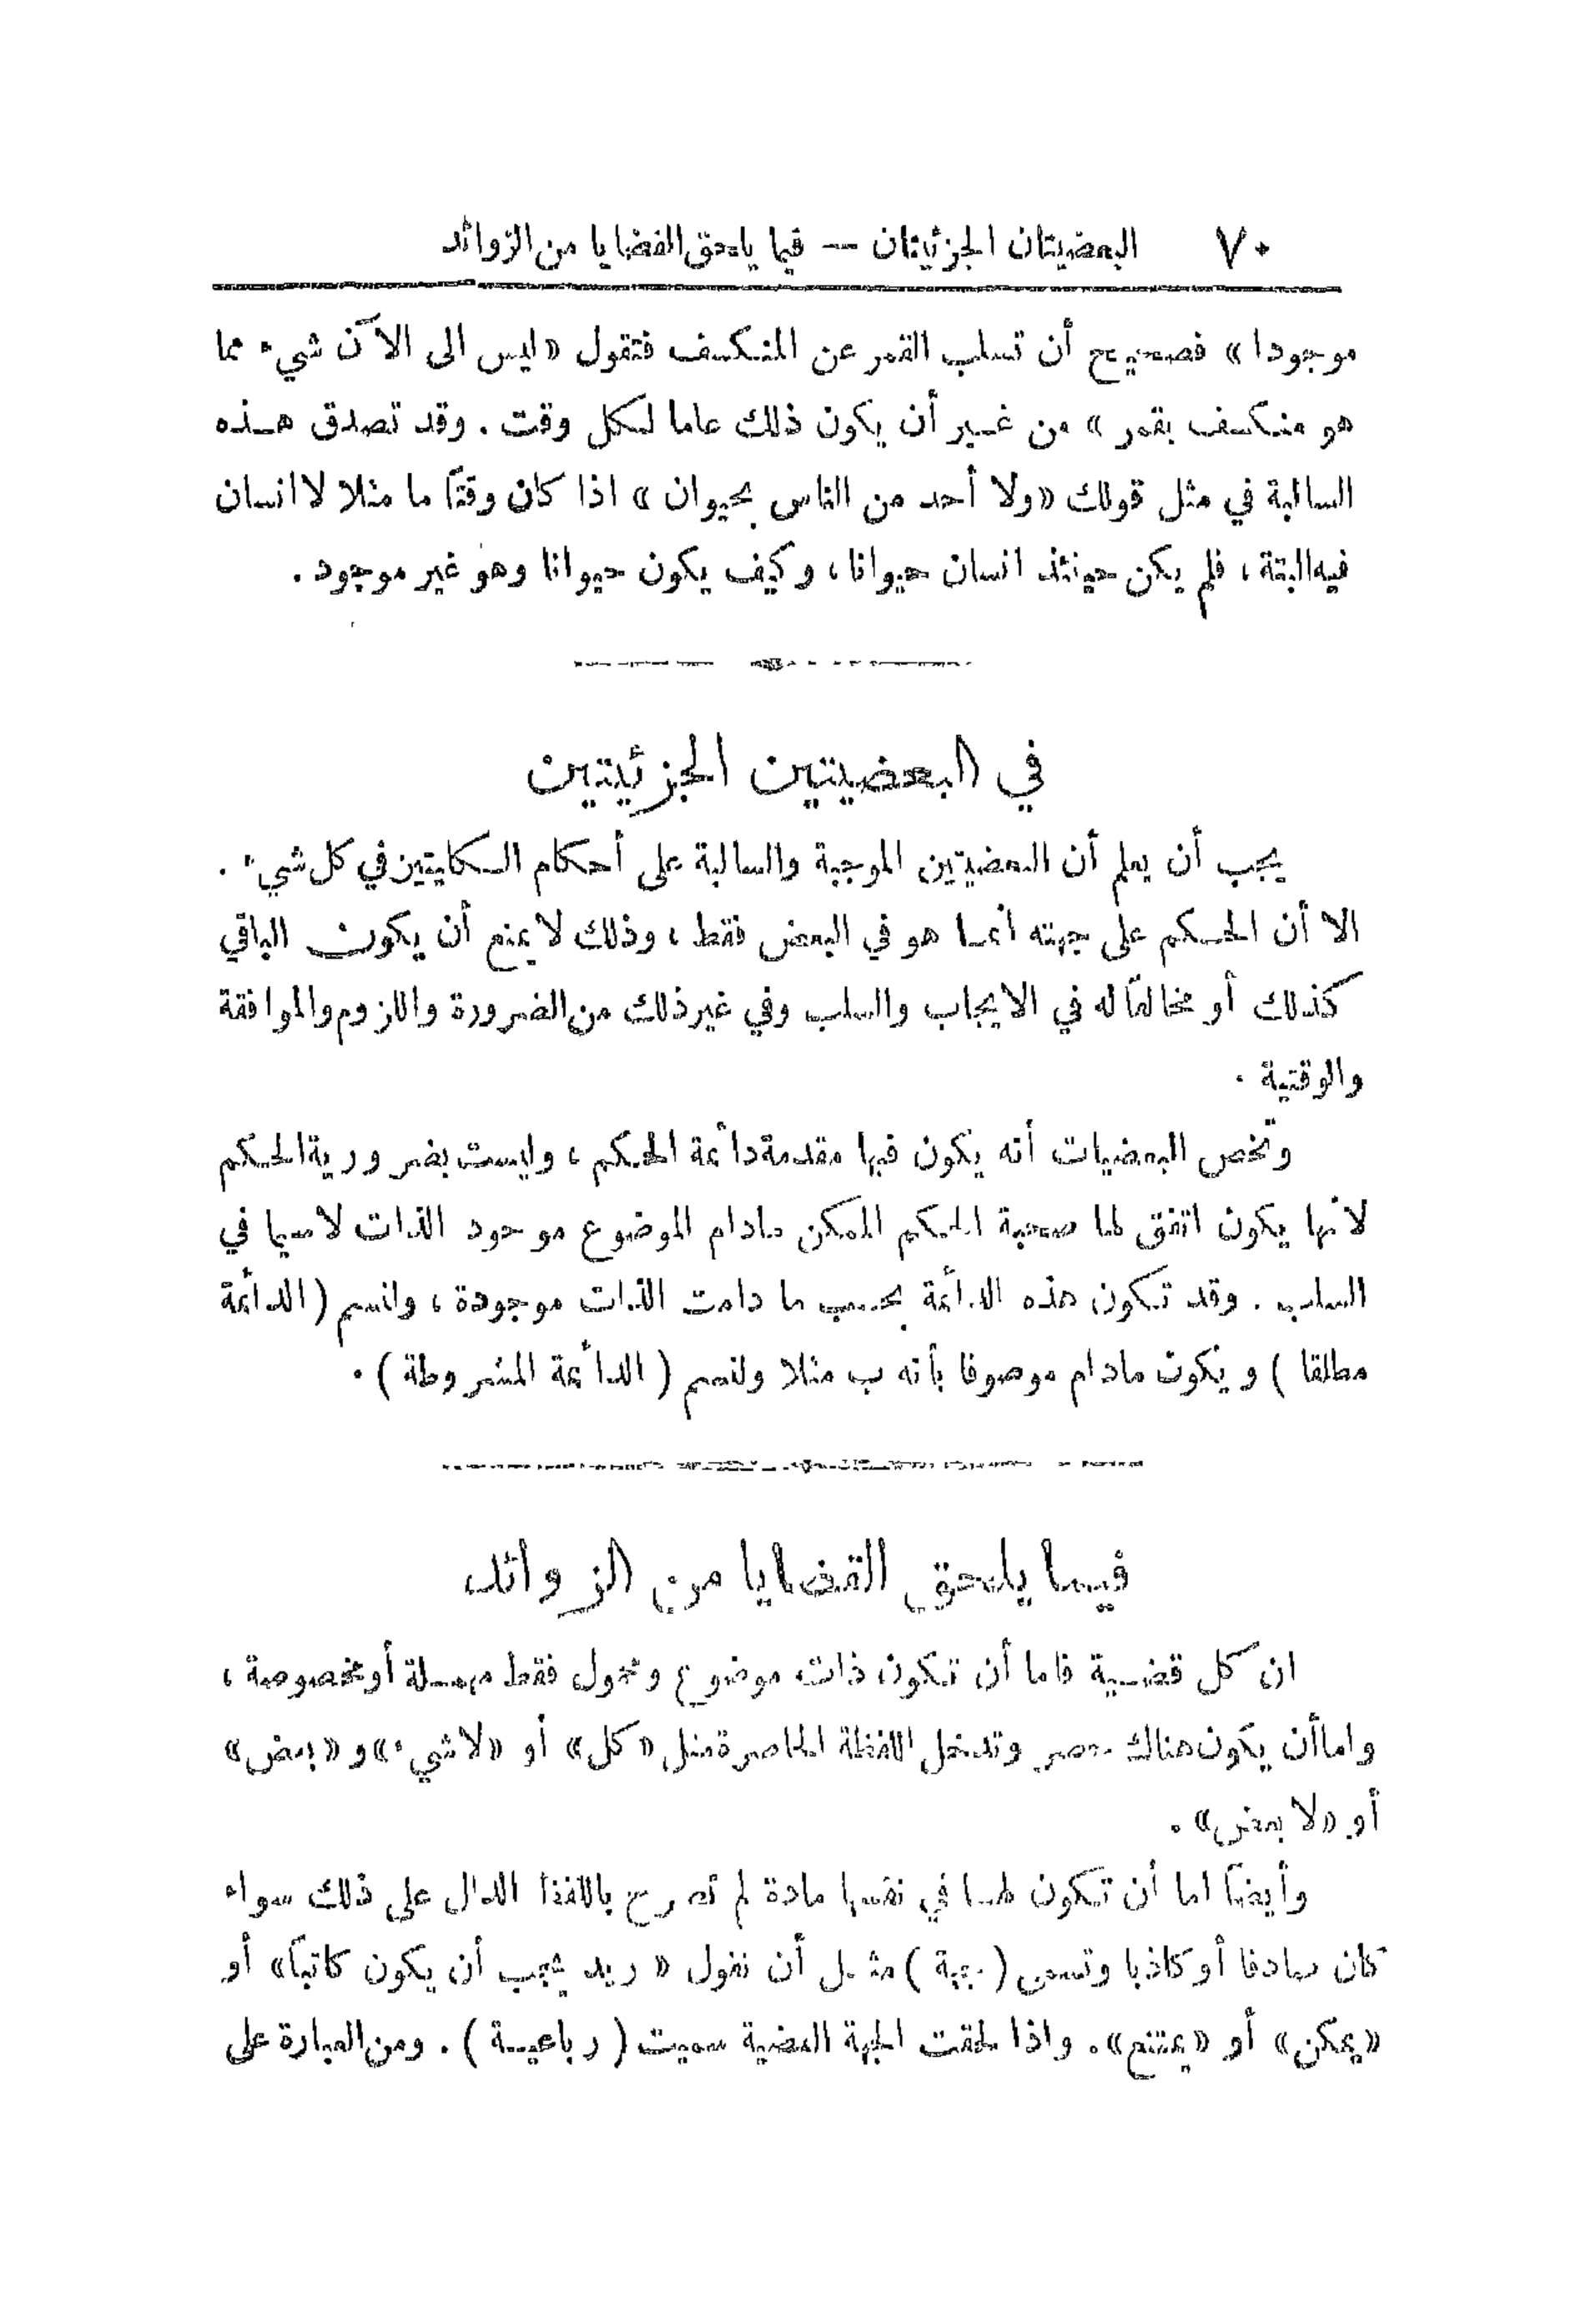 ٧٠ البعضيتان الجزئيتان — فيما يلحق القضايا من الزوائد
موجودا» فصحيح أن تسلب القمر عن المنكسف فتقول «ليس الى الآن شيء مما
هو منكسف بقمر» من غير أن يكون ذلك عاما لكل وقت . وقد تصدق هذه
السالبة في مثل قولك «ولا أحد من الناس بحيوان» اذا كان وقتاً ما مثلا لا انسان
فيه البتة ، فلم يكن حينئذ انسان حيوانا ، وكيف يكون حيوانا وهو غير موجود .
في البعضيتين الجزئيتين
يجب أن يعلم أن البعضيتين الموجبة والسالبة على أحكام الكليتين في كل شيء .
الا أن الحكم على جهته انما هو في البعض فقط ، وذلك لا يمنع أن يكون الباقي
كذلك أو مخالفاً له في الايجاب والسلب وفي غير ذلك من الضرورة واللزوم والموافقة
والوقتية .
وتخص البعضيات أنه يكون فيها مقدمة دائمة الحكم ، وليست بضرورية الحكم
لأنها يكون اتفق لها صحبة الحكم الممكن مادام الموضوع موجود الذات لاسيما في
السلب . وقد تكون هذه الدائمة بحسب ما دامت الذات موجودة ، ولنسم (الدائمة
مطلقا ) ويكون مادام موصوفا بأنه ب مثلا ولنسم ( الدائمة المشروطة ) .
فيما يلحق القضايا من الزوائد
ان كل قضية فاما أن تكون ذات موضوع ومحمول فقط مهملة أو مخصوصة ،
واما أن يكون هناك حصر وتدخل اللفظة الحاصرة مثل «كل» أو «لا شيء» و «بعض»
أو «لا بعض» .
وأيضاً اما أن تكون لها في نفسها مادة لم تصرح باللفظ الدال على ذلك سواء
كان صادقا أو كاذبا وتسمى ( جهة ) مثل أن نقول « زيد يجب أن يكون كاتباً» أو
«يمكن» أو «يمتنع» . واذا لحقت الجهة القضية سميت ( رباعية ) . ومن العبارة على